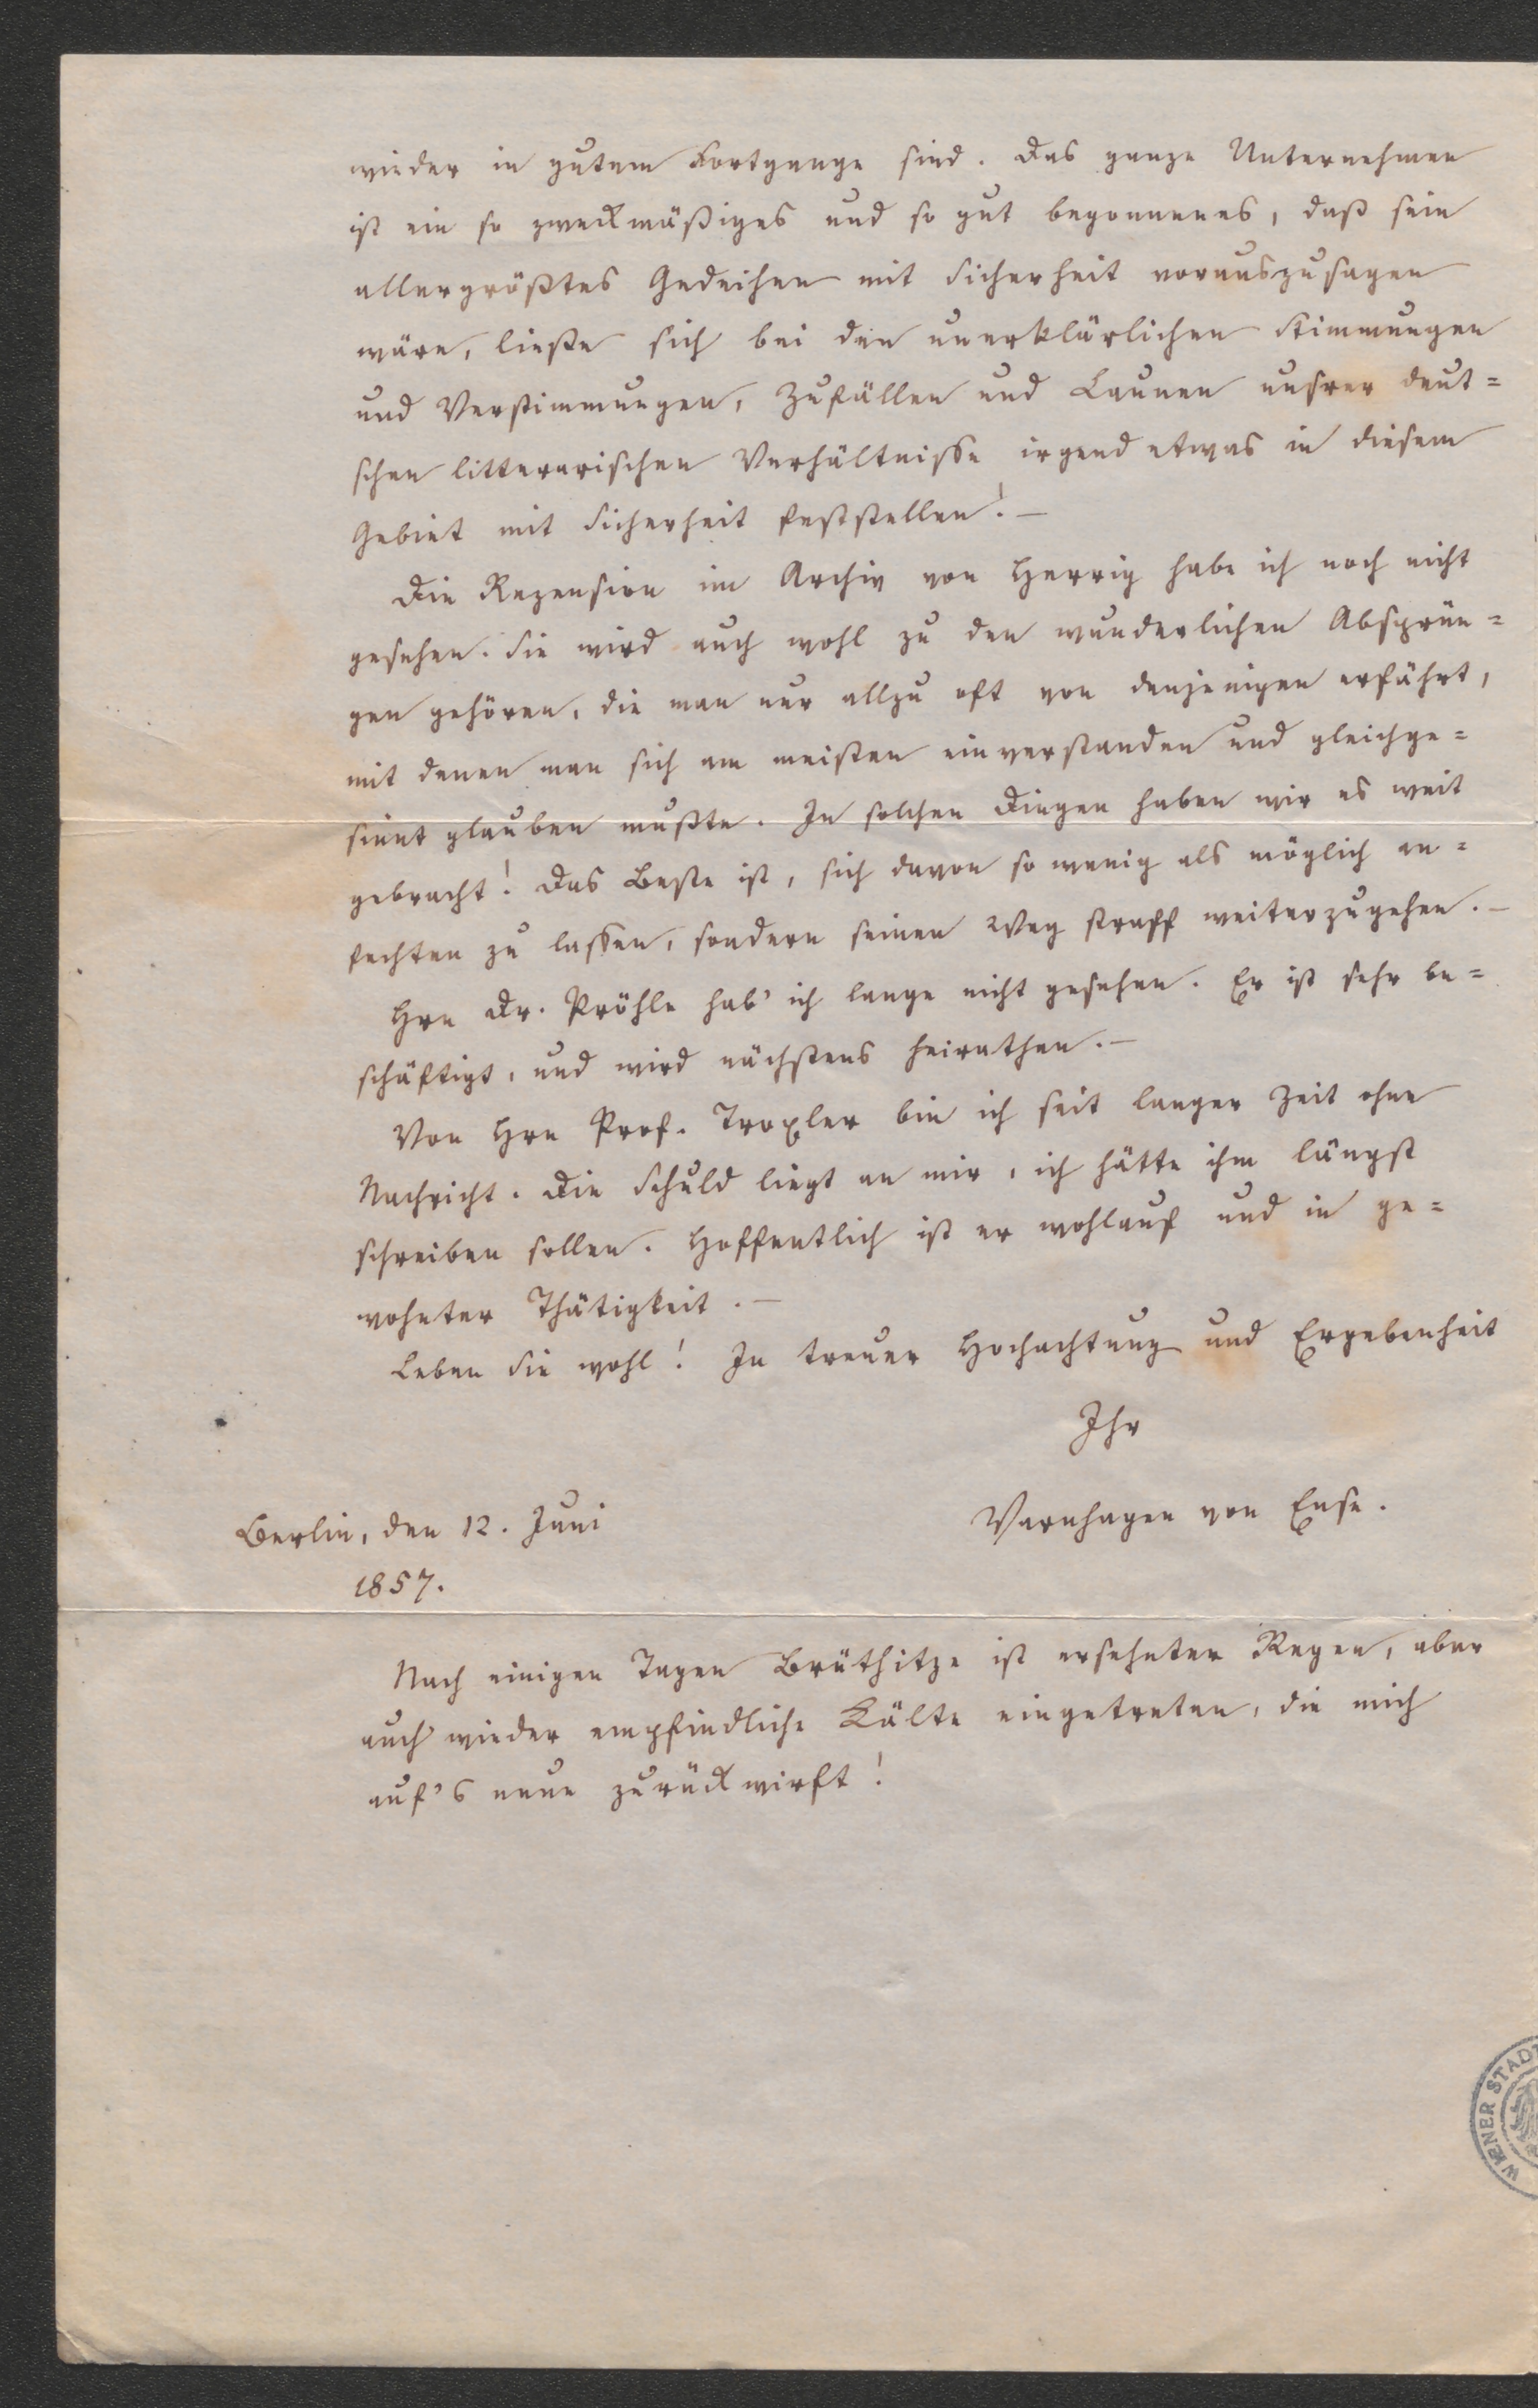 wieder in gutem Fortgange sind. Das ganze Unternehmen
ist ein so zweckmäßiges und so gut begonnenes, daß sein
allergrößtes Gedeihen mit Sicherheit vorauszusagen
wäre, ließe sich bei den unerklärlichen Stimmungen
und Verstimmungen, Zufällen und Launen unsrer deut=
schen litterarischen Verhältnisse irgend etwas in diesem
Gebiet mit Sicherheit feststellen! –
Die Rezension im Archiv von Herrig habe ich noch nicht
gesehen. Sie wird auch wohl zu den wunderlichen Absprün=
gen gehören, die man nur allzu oft von denjenigen erfährt,
mit denen man sich am meisten einverstanden und gleichge=
sinnt glauben mußte. In solchen Dingen haben wir es weit
gebracht! Das Beste ist, sich davon so wenig als möglich an=
fechten zu lassen, sondern seinen Weg straff weiterzugehen. –
Hrn Dr. Pröhle hab' ich lange nicht gesehen. Er ist sehr be=
schäftigt, und wird nächstens heirathen. –
Von Hrn Prof. Troxler bin ich seit langer Zeit ohne
Nachricht. Die Schuld liegt an mir, ich hätte ihm längst
schreiben sollen. Hoffentlich ist er wohlauf und in ge=
wohnter Thätigkeit. –
Leben Sie wohl! In treuer Hochachtung und Ergebenheit
Ihr
Varnhagen von Ense.
Berlin, den 12. Juni
1857.
Nach einigen Tagen Brüthitze ist ersehnter Regen, aber
auch wieder empfindliche Kälte eingetreten, die mich
auf's neue zurückwirft!
WIENER STADT